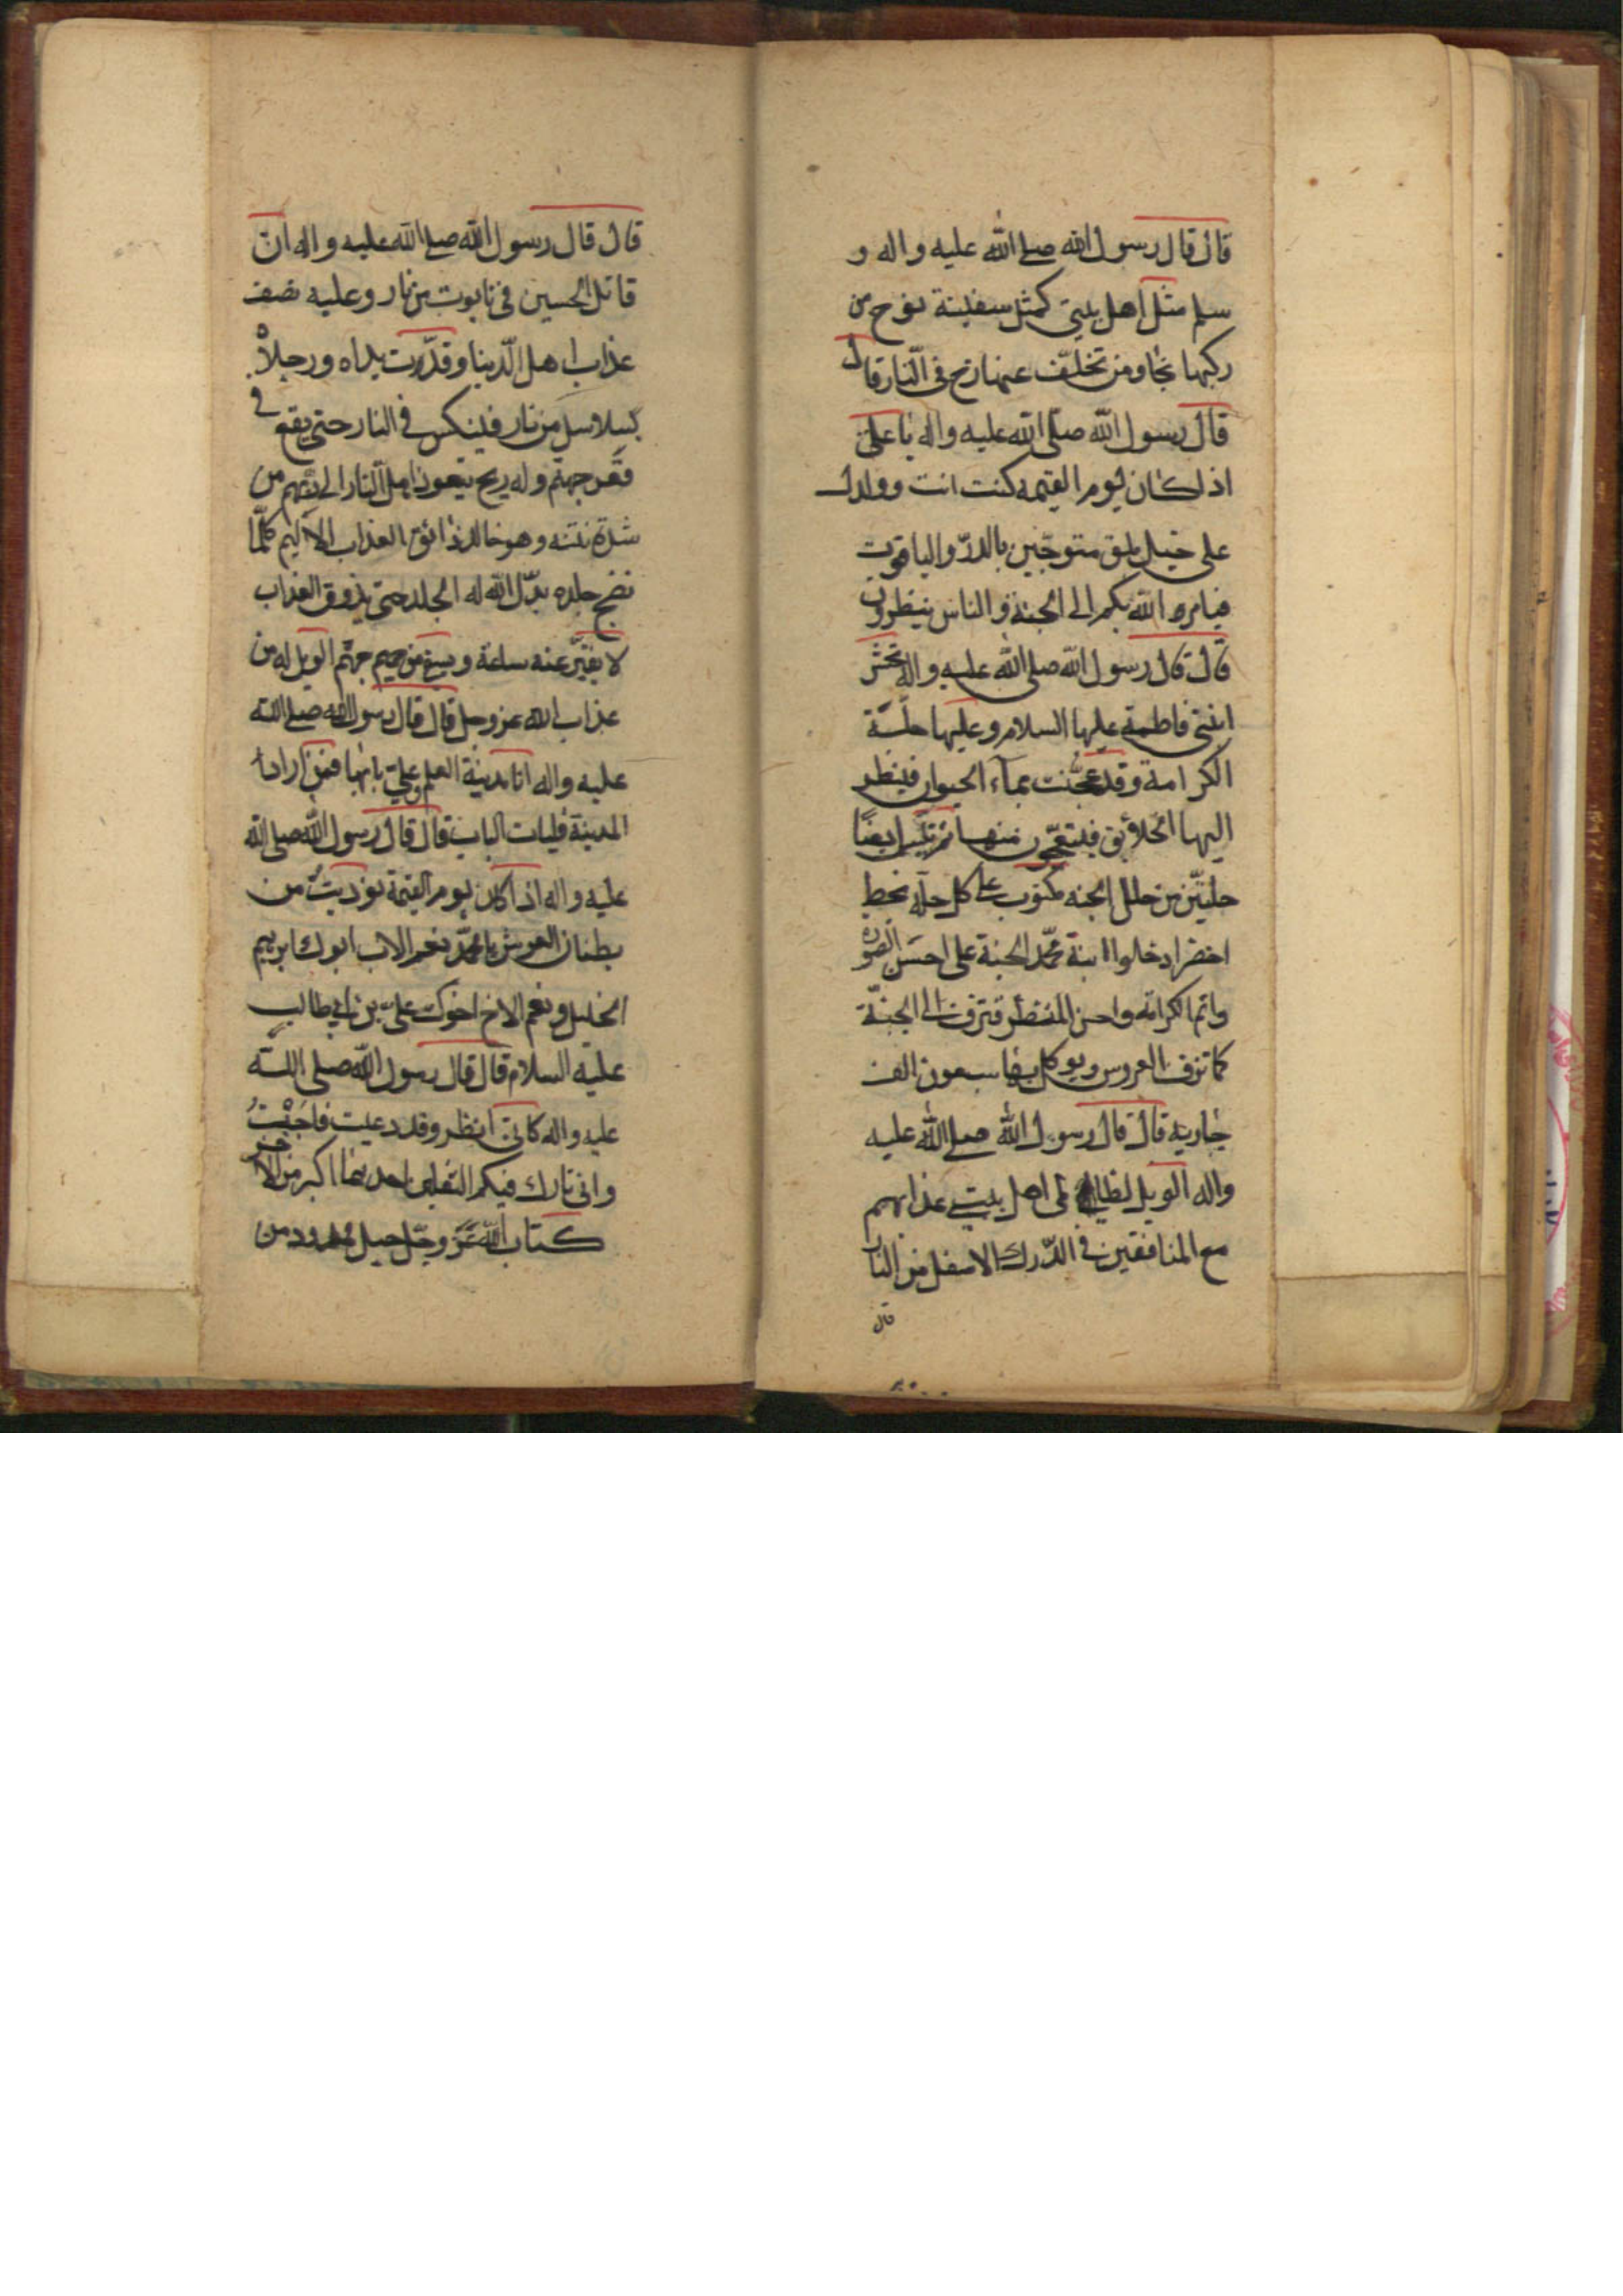 قال قال رسول الله صلى الله عليه واله و
سلم مثل اهل بيتي كمثل سفينة نوح من
ركبها نجا ومن تخلّف عنها زخ في النّار قال
قال رسول الله صلّى الله عليه واله يا علي
اذا كان يوم القيمه كنت انت وولدك
على خيل بلق متوجّين بالدرّ والياقوت
فيامره الله بكم الى الجنة والناس ينظرون
قال قال رسول الله صلى الله عليه واله تحشر
ابنتي فاطمة عليها السلام وعليها حلّة
الكرامة وقد عجنت بماء الحيوان فينظر
اليها الخلائق فيتعجّبون منها ثم تلبس ايضًا
حلّتين من حلل الجنه مكتوب على كل حلّه بخط
اخضر ادخلوا ابنة محمّد الجنة على احسَن الصوره
واتم الكرامه واحسن المنظر فتزف الى الجنّة
كما تزف العروس ويوكل بها سبعون الف
جارية قال قال رسول الله صلى الله عليه
واله الويل لظالمي اهل بيتي عذابهم
مع المنافقين في الدّرك الاسفل من النار
قال
قال قال رسول الله صلى الله عليه واله ان
قاتل الحسين في تابوت من نار وعليه نصف
عذاب اهل الدّنيا وقد شدّت يداه ورجلاه
بسلاسل من نار فينكس في النار حتى يقع في
قعر جهنّم وله ريح يتعوذ اهل النّار الى ربّهم من
شدة نتنه وهو خالد ذائق العذاب الاليم كلّما
نضج جلده بدّل الله له الجلد حتى يذوق العذاب
لا يفتّر عنه ساعة ويسقى من حميم جهنّم الويل له من
عذاب الله عز وجل قال قال رسول الله صلى الله
عليه واله انا مدينة العلم وعليّ بابها فمن اراد
المدينة فليات الباب قال قال رسول الله صلى الله
عليه واله اذا كان يوم القيمة نوديت من
بطنان العرش يا محمّد نعم الاب ابوك ابرهيم
الخليل ونعم الاخ اخوك عليّ بن ابي طالب
عليه السلام قال قال رسول الله صلى اللّه
عليه واله كاني انظر وقد دعيت فاجَبْتُ
واني تارك فيكم الثقلين احديهما اكبر من الآخر
كتاب الله عزّ وجّل حبل ممدود من